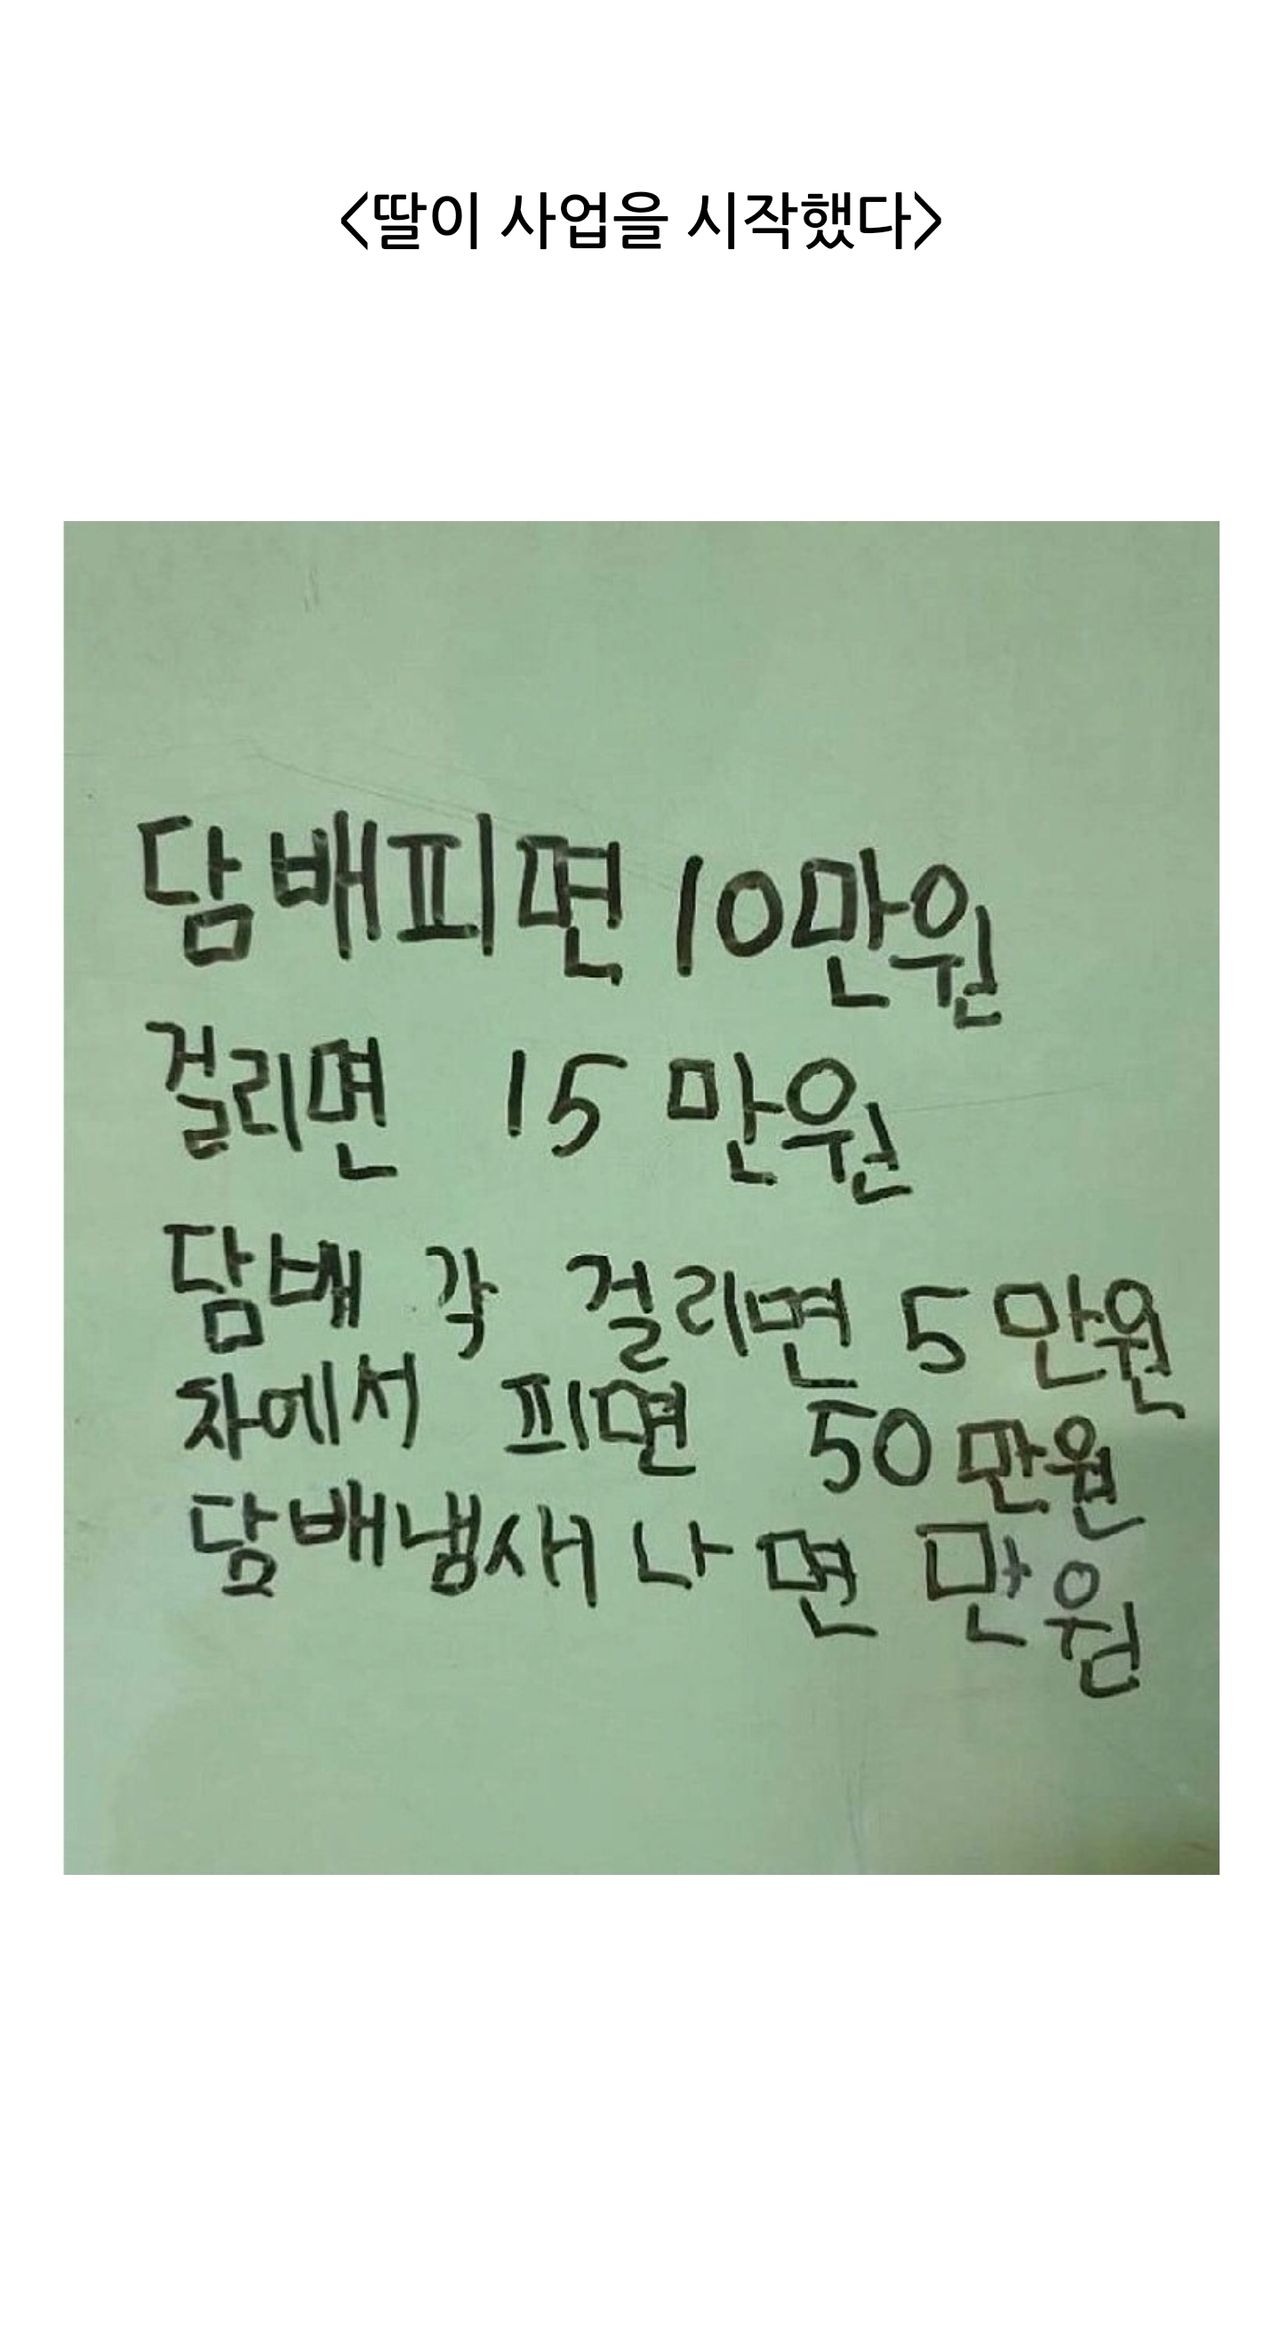 <딸이 사업을 시작했다>
담배피면 10만원
걸리면 15만원
담배 각 걸리면 5만원
차에서 피면 50만원
담배냄새나면 만원